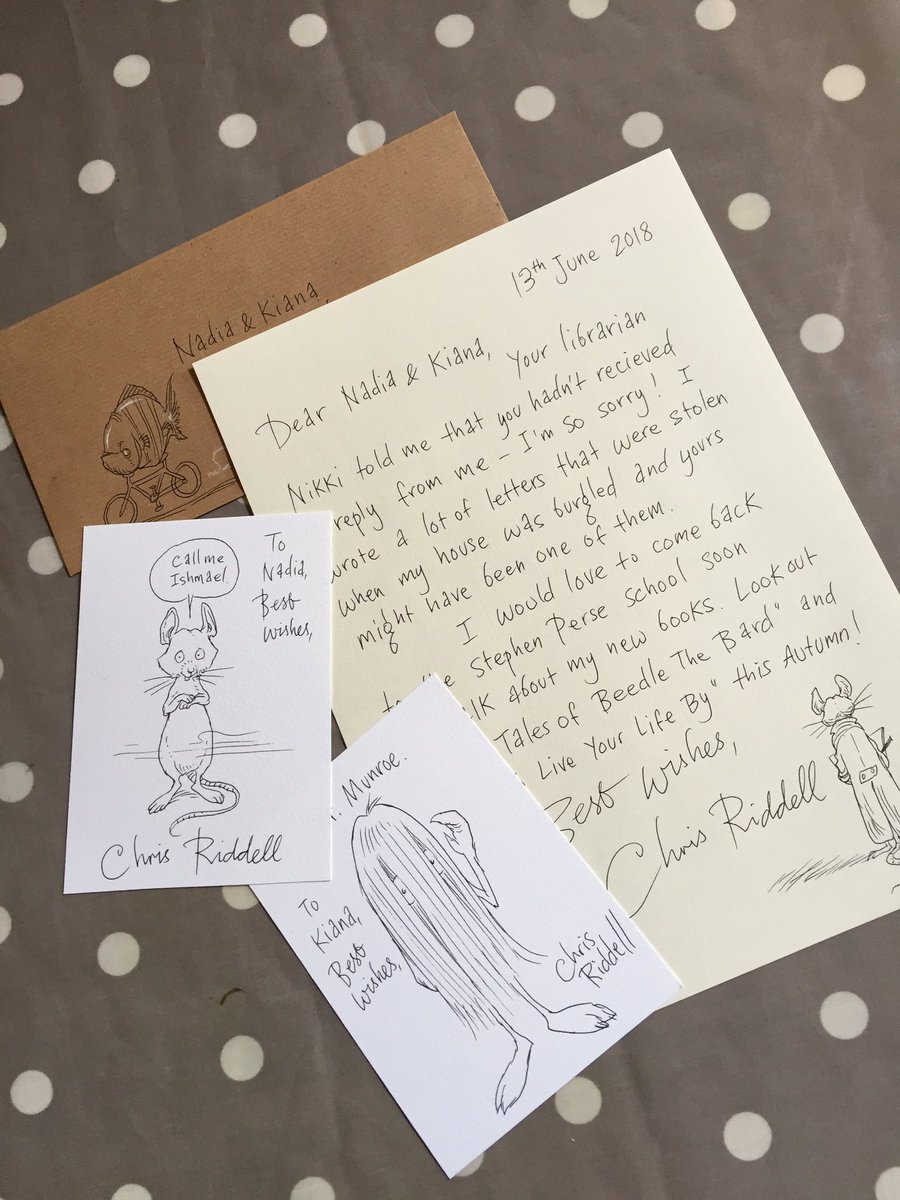 Nadia & Kiana,
13th June 2018
Dear Nadia & Kiana, Your librarian
Nikki told me that you hadn't recieved
reply from me - I'm so sorry! I
wrote a lot of letters that were stolen
when my house was burgled and yours
might have been one of them.
I would love to come back
Stephen Perse school soon
about my new books. Look out
Tales of Beedle The Bard" and
Live Your Life By" this Autumn!
Best Wishes,
Chris Riddell
Call me
Ishmael.
To
Nadia,
Best
wishes,
Chris Riddell
Munroe.
To
Kiana,
Best
wishes,
Chris
Riddell